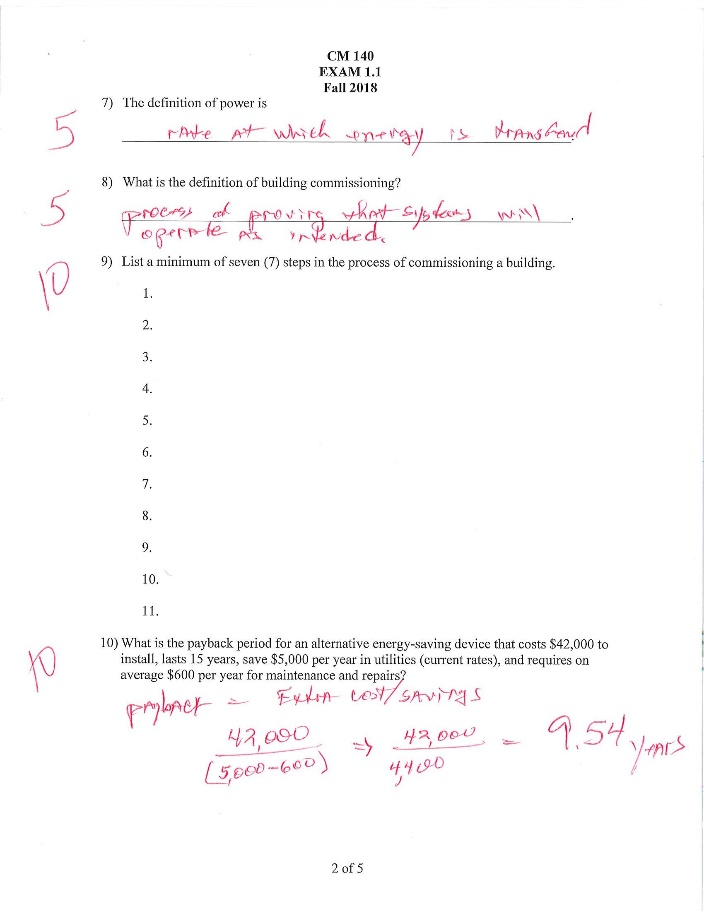 CM 140
EXAM 1.1
Fall 2018
7) The definition of power is
5
rate at which energy is transferred
8) What is the definition of building commissioning?
5
process of proving that systems will
operate as intended.
9) List a minimum of seven (7) steps in the process of commissioning a building.
10
1.
2.
3.
4.
5.
6.
7.
8.
9.
10.
11.
10) What is the payback period for an alternative energy-saving device that costs $42,000 to
10
install, lasts 15 years, save $5,000 per year in utilities (current rates), and requires on
average $600 per year for maintenance and repairs?
payback = Extra cost/savings
42,000 / (5,000-600) => 42,000 / 4,400 = 9.54 years
2 of 5